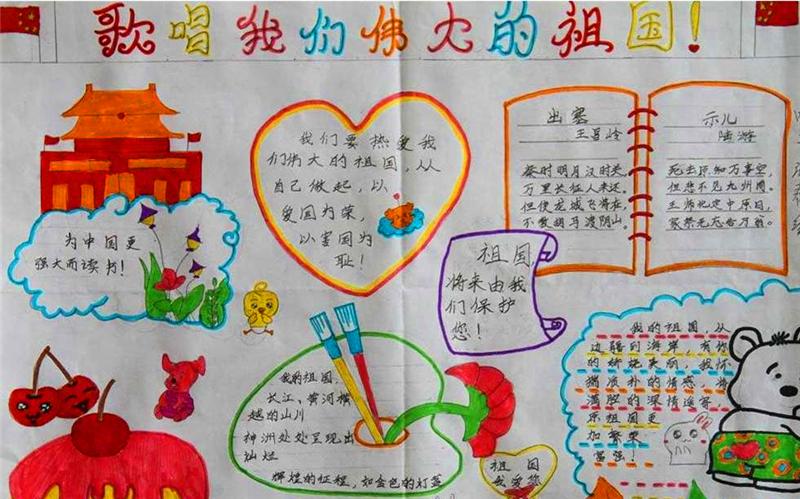 歌唱我们伟大的祖国!
我们要热爱我
们伟大的祖国,从
自己做起,以
爱国为荣,
以害国为
耻!
出塞
王昌岭
秦时明月汉时关。
万里长征人未还。
但使龙城飞将在,
不教胡马渡阴山。
示儿
陆游
死去原知万事空,
但悲不见九州同。
王师北定中原日,
家祭无忘告乃翁。
为中国更
强大而读书!
祖国,
将来由我
们保护
您!
我的祖国,
长江、黄河横
越的山川
神洲处处呈现出
灿烂
辉煌的征程,如金色的灯盏
祖国
我爱您
我的祖国,从
边疆到海岸 有你
美丽 我怀
揣质朴的情感,将
满腔的深情遥寄
祖国更
加繁荣
富强!